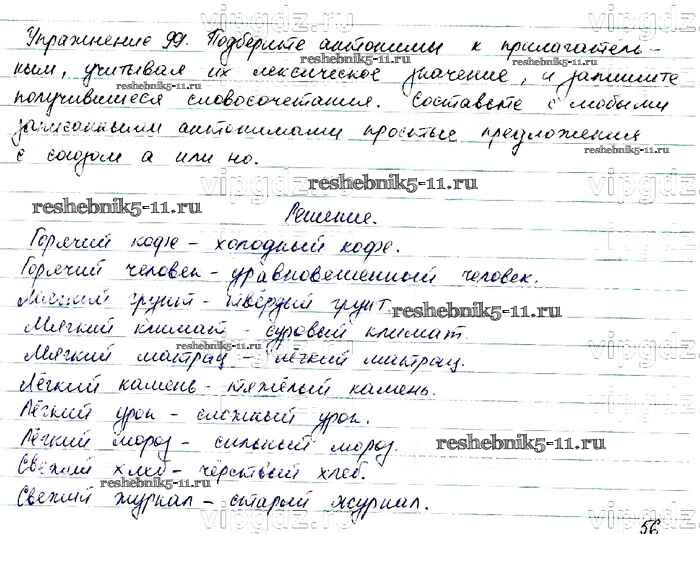 Упражнение 99. Подберите антонимы к прилагатель-
ным, учитывая их лексическое значение, и запишите
получившиеся словосочетания. Составьте с любыми
записанными антонимами простые предложения
с союзом а или но.
Решение.
Горячий кофе - холодный кофе.
Горячий человек - уравновешенный человек.
Мягкий грунт - твёрдый грунт.
Мягкий климат - суровый климат.
Мягкий матрац - лёгкий матрац.
Лёгкий камень - тяжёлый камень.
Лёгкий урок - сложный урок.
Лёгкий мороз - сильный мороз.
Свежий хлеб - чёрствый хлеб.
Свежий журнал - старый журнал.
56
vipgdz.ru
reshebnik5-11.ru